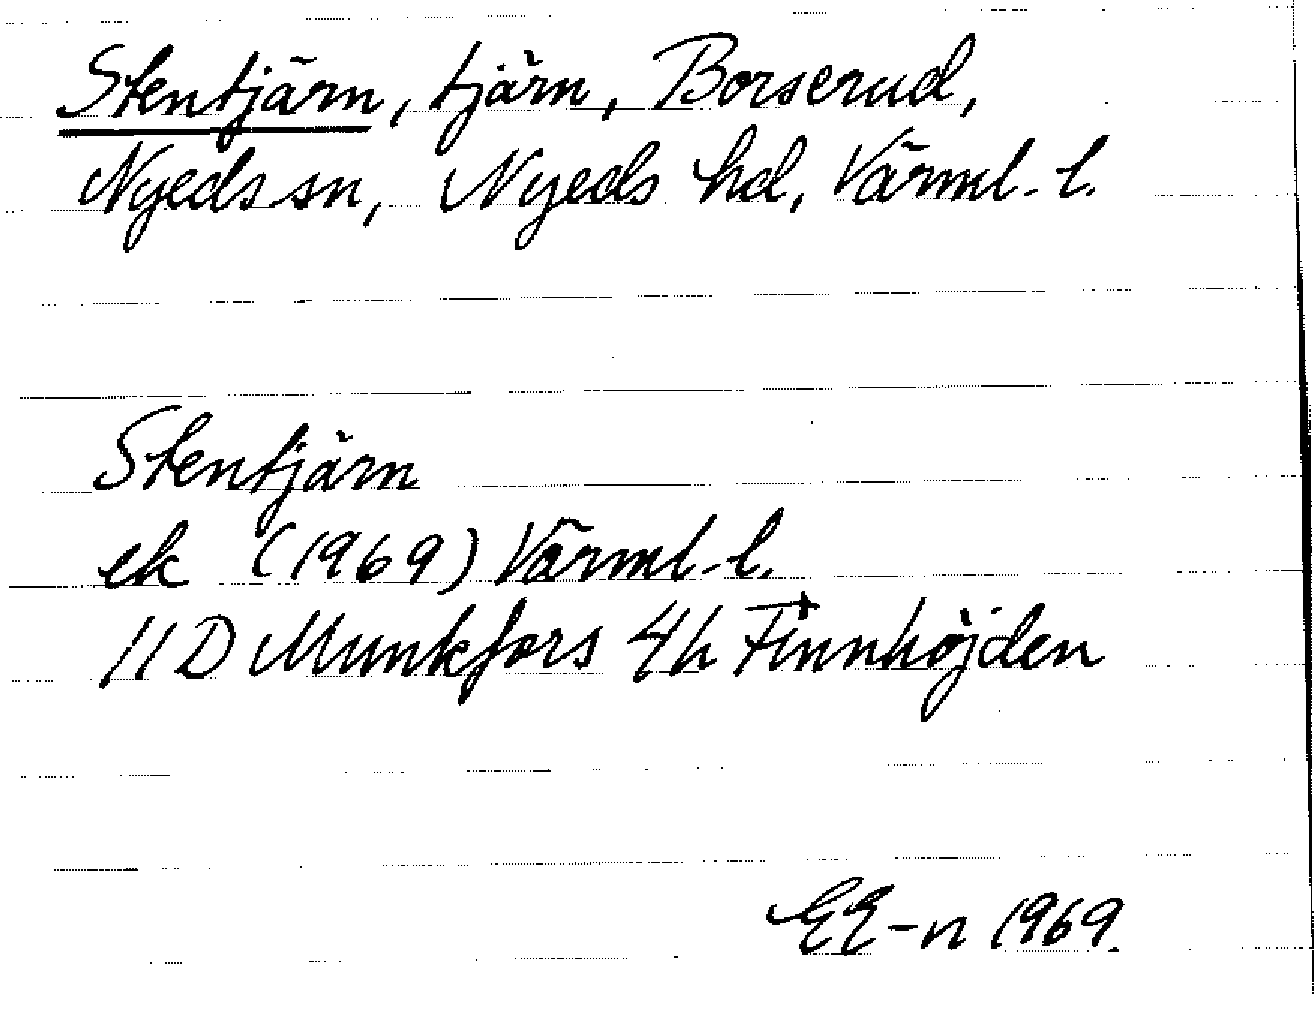 Stentjärn, tjärn, Borserud,
Nyeds sn, Nyeds hd, Värml. l.
Stentjärn
ek (1969) Värml. l.
11D Munkfors 4h Finnhöjden
EE-n 1969.